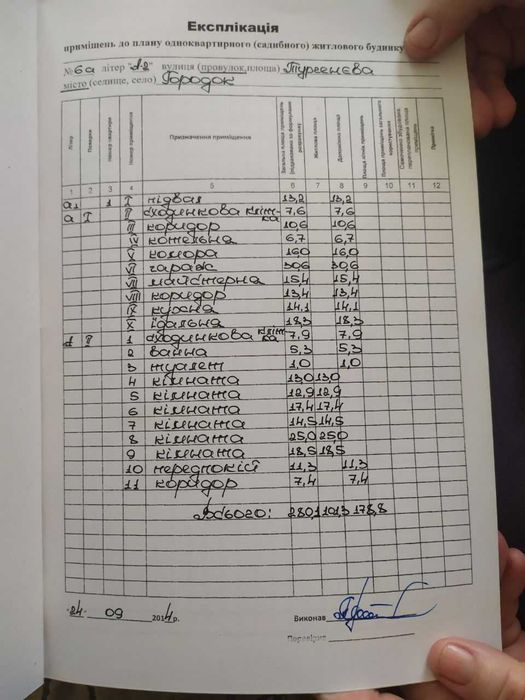 Експлікація
приміщень до плану одноквартирного (садибного) житлового будинку
№ 6а літер "А-2" вулиця (провулок, площа) Тургенєва
місто (селище, село) Городок
Літер Поверхи Номер квартири Номер приміщення Призначення приміщення Житлова площа Допоміжна площа Примітка
1 2 3 4 5 6 7 8 9 10 11 12
а1 1 I підвал 13,2 13,2
а I II сходинкова клітка 7,6 7,6
III коридор 10,6 10,6
IV котельна 6,7 6,7
V комора 16,0 16,0
VI гараж 30,6 30,6
VII майстерна 15,4 15,4
VIII коридор 13,4 13,4
IX кухня 14,1 14,1
X їдальна 18,3 18,3
1 сходинкова клітка 7,9 7,9
2 ванна 5,3 5,3
3 туалет 1,0 1,0
4 кімната 13,0 13,0
5 кімната 12,9 12,9
6 кімната 17,4 17,4
7 кімната 14,5 14,5
8 кімната 25,0 25,0
9 кімната 18,5 18,5
10 передпокій 11,3 11,3
11 коридор 7,4 7,4
Всього: 280,1 101,3 178,8
24 09 2014р. Виконав
Перевірив